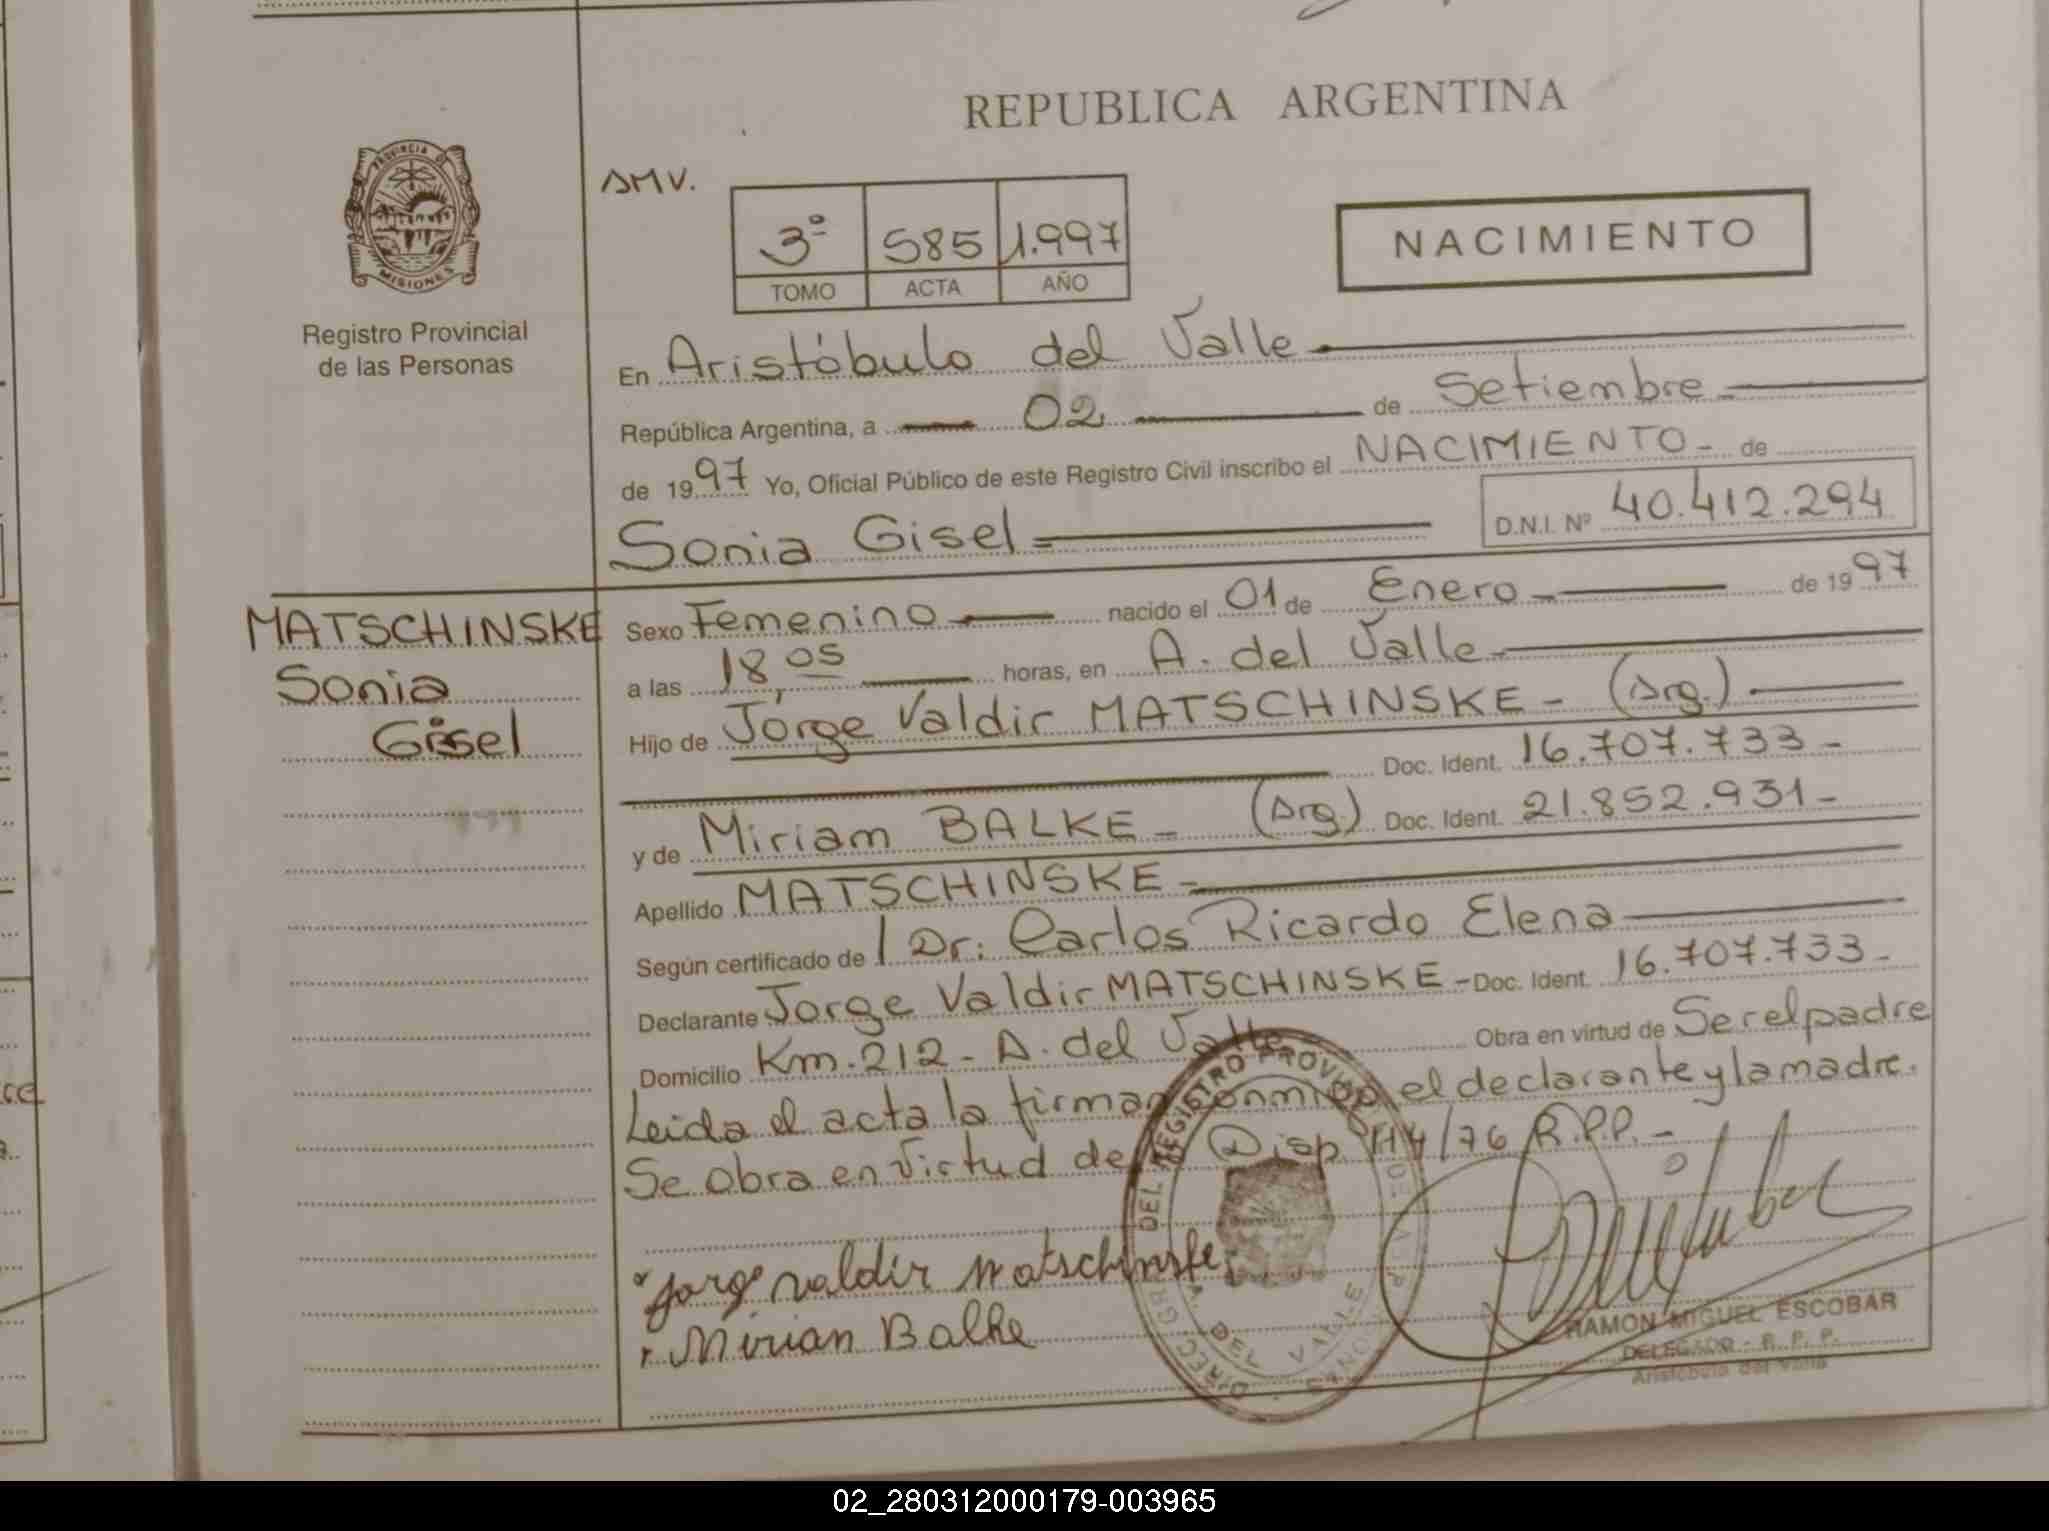 REPUBLICA ARGENTINA
PROVINCIA DE
MISIONES
Registro Provincial
de las Personas
AMV.
3º 585 1.997
TOMO ACTA AÑO
NACIMIENTO
En Aristóbulo del Valle
República Argentina, a 02 de Setiembre
de 1997 Yo, Oficial Público de este Registro Civil inscribo el NACIMIENTO de
Sonia Gisel D.N.I. Nº 40.412.294
MATSCHINSKE
Sonia
Gisel
Sexo Femenino nacido el 01 de Enero de 1997
a las 18,05 horas, en A. del Valle
Hijo de Jorge Valdir MATSCHINSKE - (Arg.)
Doc. Ident. 16.707.733-
y de Miriam BALKE - (Arg.) Doc. Ident. 21.852.931-
Apellido MATSCHINSKE-
Según certificado de Dr: Carlos Ricardo Elena
Declarante Jorge Valdir MATSCHINSKE - Doc. Ident. 16.707.733-
Domicilio Km.212- A. del Valle Obra en virtud de Ser el padre
Leida el acta la firman conmigo el declarante y la madre.
Se obra en virtud de Disp 114/76 R.P.P.-
Jorge Valdir Matschinske
Mirian Balke
DEL REGISTRO PROVINCIAL DE
A. DEL VALLE
RAMON MIGUEL ESCOBAR
DELEGADO - R. P. P.
Aristóbulo del Valle
02_280312000179-003965